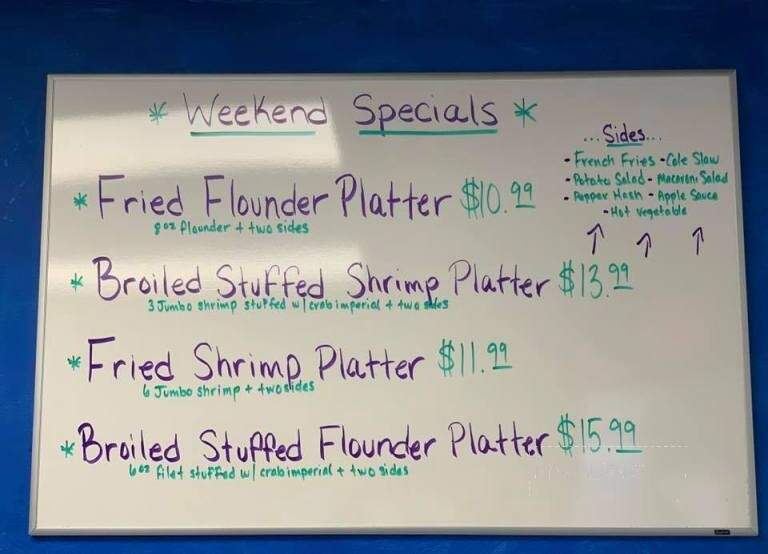 * Weekend Specials *
...Sides...
- French Fries - Cole Slaw
- Potato Salad - Macaroni Salad
- Pepper Hash - Apple Sauce
- Hot Vegetable
* Fried Flounder Platter $10.99
8oz flounder + two sides
* Broiled Stuffed Shrimp Platter $13.99
3 Jumbo shrimp stuffed w/ crab imperial + two sides
* Fried Shrimp Platter $11.99
6 Jumbo shrimp + two sides
* Broiled Stuffed Flounder Platter $15.99
6oz filet stuffed w/ crab imperial + two sides